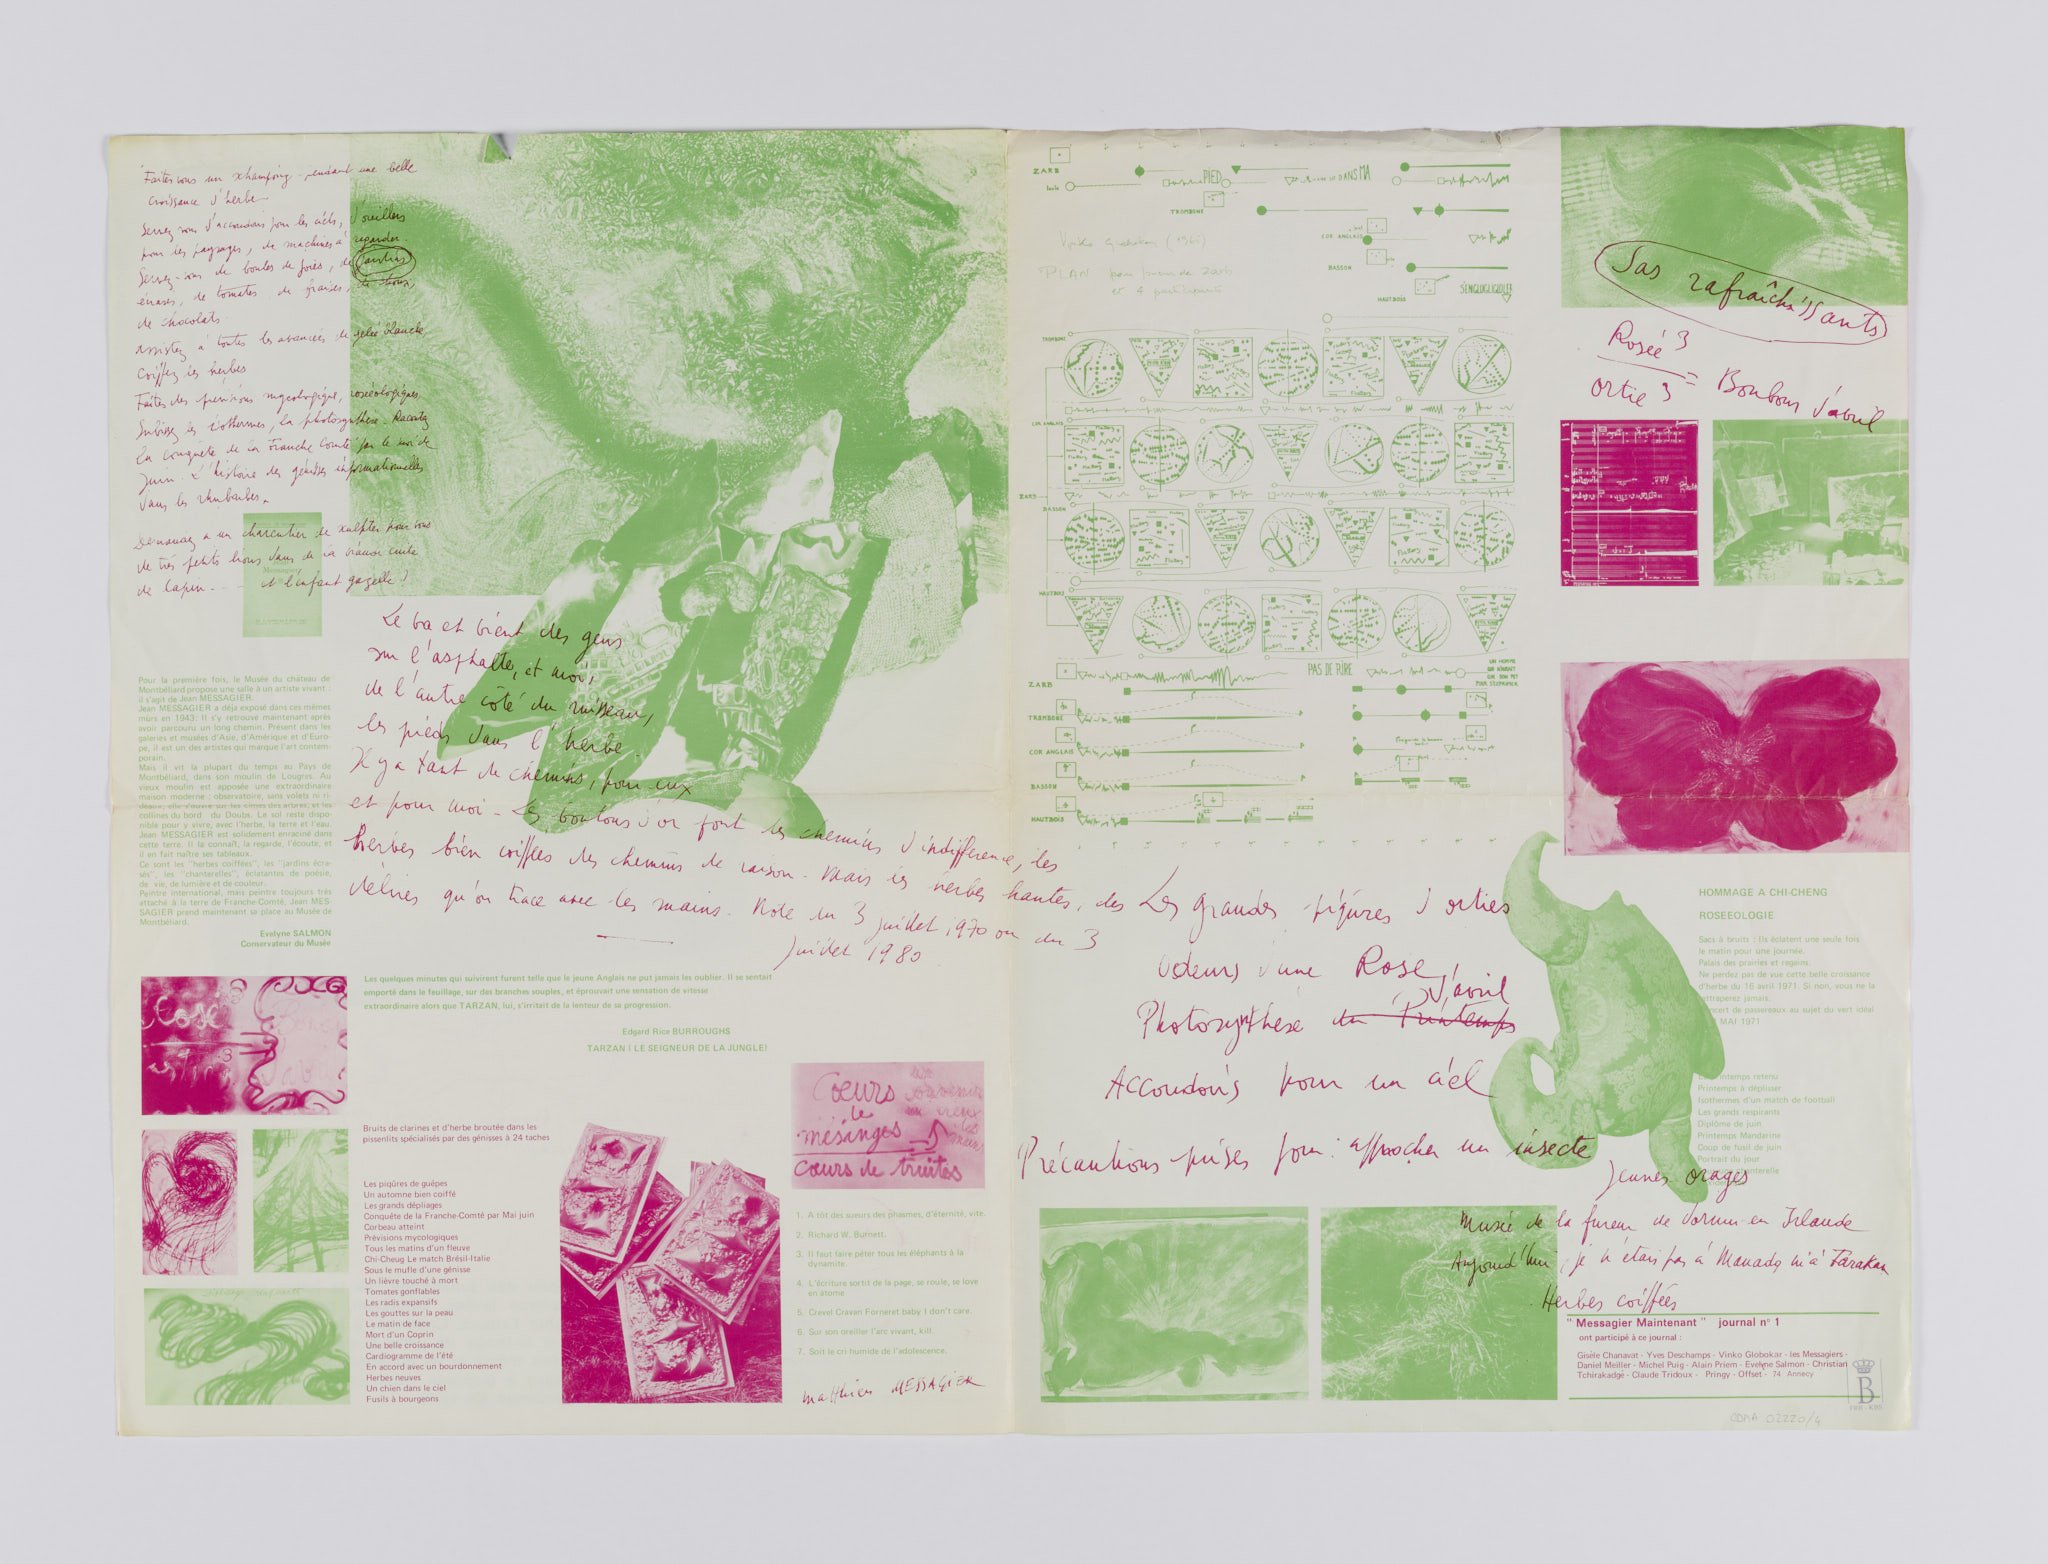 Faites vous un xhampoing pendant une belle
croissance d'herbe
Servez vous d'accoudoirs pour les ciels, d'oreillers
pour les paysages, de machines à regarder.
Servez-vous de boules de foins, de jardins
écrasés, de tomates, de fraises, de choux,
de chocolats.
assistez à toutes les avancées de gelée blanche
coiffez les herbes
Faites des prévisions mycologiques, roséeologiques,
Subissez les isothermes, la photosynthèse. Racontez
la conquête de la Franche Comté par le moi de
Juin. L'histoire des génisses informationnelles
dans les rhubarbes.
Demandez à un charcutier de sculpter pour vous
de très petits lions dans de la viande cuite
de lapin... et l'enfant gazelle !
Messagier
Le va et vient des gens
sur l'asphalte, et moi,
de l'autre côté du ruisseau,
les pieds dans l'herbe.
Il y a tant de chemins, pour eux
et pour moi - Les boutons d'or font les chemins d'indifférence, les
herbes bien coiffées des chemins de raison - Mais les herbes hautes, des
délires qu'on trace avec les mains. Note du 3 juillet 1970 ou du 3
juillet 1980
Pour la première fois, le Musée du château de
Montbéliard propose une salle à un artiste vivant :
il s'agit de Jean MESSAGIER.
Jean MESSAGIER a déja exposé dans ces mêmes
murs en 1943: Il s'y retrouve maintenant après
avoir parcouru un long chemin. Présent dans les
galeries et musées d'Asie, d'Amérique et d'Euro-
pe, il est un des artistes qui marque l'art contem-
porain.
Mais il vit la plupart du temps au Pays de
Montbéliard, dans son moulin de Lougres. Au
vieux moulin est apposée une extraordinaire
maison moderne : observatoire, sans volets ni ri-
deaux, elle s'ouvre sur les cimes des arbres, et les
collines du bord du Doubs. Le sol reste dispo-
nible pour y vivre, avec l'herbe, la terre et l'eau.
Jean MESSAGIER est solidement enraciné dans
cette terre. Il la connaît, la regarde, l'écoute, et
il en fait naître ses tableaux.
Ce sont les "herbes coiffées", les "jardins écra-
sés", les "chanterelles", éclatantes de poésie,
de vie, de lumière et de couleur.
Peintre international, mais peintre toujours très
attaché à la terre de Franche-Comté, Jean MES-
SAGIER prend maintenant sa place au Musée de
Montbéliard.
Evelyne SALMON
Conservateur du Musée
Les quelques minutes qui suivirent furent telle que le jeune Anglais ne put jamais les oublier. Il se sentait
emporté dans le feuillage, sur des branches souples, et éprouvait une sensation de vitesse
extraordinaire alors que TARZAN, lui, s'irritait de la lenteur de sa progression.
Edgard Rice BURROUGHS
TARZAN ( LE SEIGNEUR DE LA JUNGLE)
Rosé
3
Cœurs
de
mésanges
cœurs de truites
Bruits de clarines et d'herbe broutée dans les
pissenlits spécialisés par des génisses à 24 taches
Les piqûres de guêpes
Un automne bien coiffé
Les grands dépliages
Conquête de la Franche-Comté par Mai juin
Corbeau atteint
Prévisions mycologiques
Tous les matins d'un fleuve
Chi-Cheug Le match Brésil-Italie
Sous le mufle d'une génisse
Un lièvre touché à mort
Tomates gonflables
Les radis expansifs
Les gouttes sur la peau
Le matin de face
Mort d'un Coprin
Une belle croissance
Cardiogramme de l'été
En accord avec un bourdonnement
Herbes neuves
Un chien dans le ciel
Fusils à bourgeons
1. A tôt des sueurs des phasmes, d'éternité, vite.
2. Richard W. Burnett.
3. Il faut faire péter tous les éléphants à la
dynamite.
4. L'écriture sortit de la page, se roule, se love
en atome
5. Crevel Cravan Forneret baby I don't care.
6. Sur son oreiller l'arc vivant, kill.
7. Soit le cri humide de l'adolescence.
Matthieu MESSAGIER
ZARB
PIED
DANS MA
TROMBONE
Vinko Globokar
COR ANGLAIS
PLAN pour joueur de zarb
et 4 partitions
BASSON
HAUTBOIS
TROMBONE
COR ANGLAIS
ZARB
BASSON
HAUTBOIS
ZARB
PAS DE RIRE
UN HOMME
TROMBONE
COR ANGLAIS
BASSON
HAUTBOIS
Sas rafraîchissants
Rosée 3
ortie 3 = Bonbons d'avril
Les grandes piqûres d'orties
Odeurs d'une Rose
d'avril
Photosynthèse du Printemps
Accoudoirs pour un ciel
Précautions prises pour approcher un insecte
Jeunes orages
Musée de la fureur de dormir en Irlande
Aujourd'hui, je n'étais pas à Manado ni à Tarakan
Herbes coiffées
HOMMAGE A CHI-CHENG
ROSEEOLOGIE
Sacs à bruits : Ils éclatent une seule fois
le matin pour une journée.
Palais des prairies et regains.
Ne perdez pas de vue cette belle croissance
d'herbe du 16 avril 1971. Si non, vous ne la
rattraperez jamais.
Concert de passereaux au sujet du vert idéal
MAI 1971
Printemps retenu
Printemps à déplisser
Isothermes d'un match de football
Les grands respirants
Diplôme de juin
Printemps Mandarine
Coup de fusil de juin
Portrait du jour
chanterelle
"Messagier Maintenant" journal n° 1
ont participé à ce journal :
Gisèle Chanavat - Yves Deschamps - Vinko Globokar - les Messagiers -
Daniel Meiller - Michel Puig - Alain Priem - Evelyne Salmon - Christian
Tchirakadgé - Claude Tridoux - Pringy - Offset - 74 Annecy
B
CDMA 02220/4